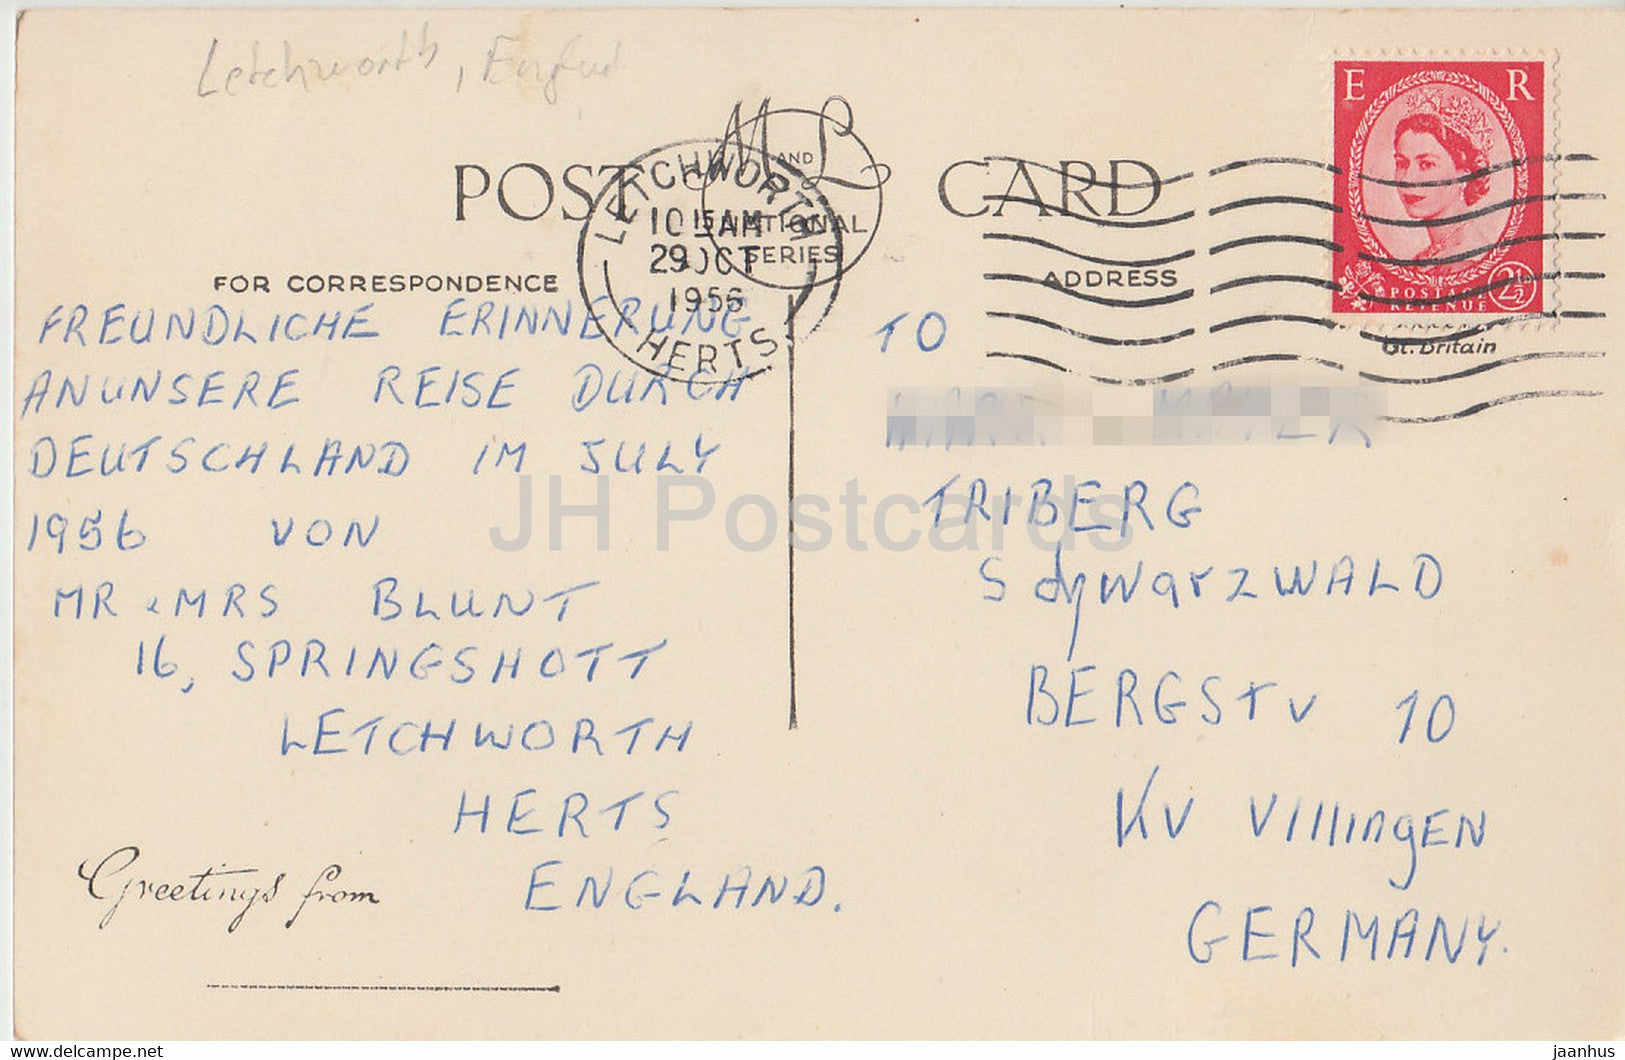 Letchworth,
POST CARD
M AND L
NATIONAL
SERIES
LETCHWORTH
10 15 AM
29 OCT
1956
HERTS
E R
POSTAGE
REVENUE
2½
Gt. Britain
FOR CORRESPONDENCE
ADDRESS
FREUNDLICHE ERINNERUNG
AN UNSERE REISE DURCH
DEUTSCHLAND IM JULY
1956 VON
MR & MRS BLUNT
16, SPRINGSHOTT
LETCHWORTH
HERTS
ENGLAND.
Greetings from
TO
TRIBERG
SchwarzWALD
BERGSTr 10
Kr VIllingEN
GERMANY.
JH Postcards
www.delcampe.net
jaanhus